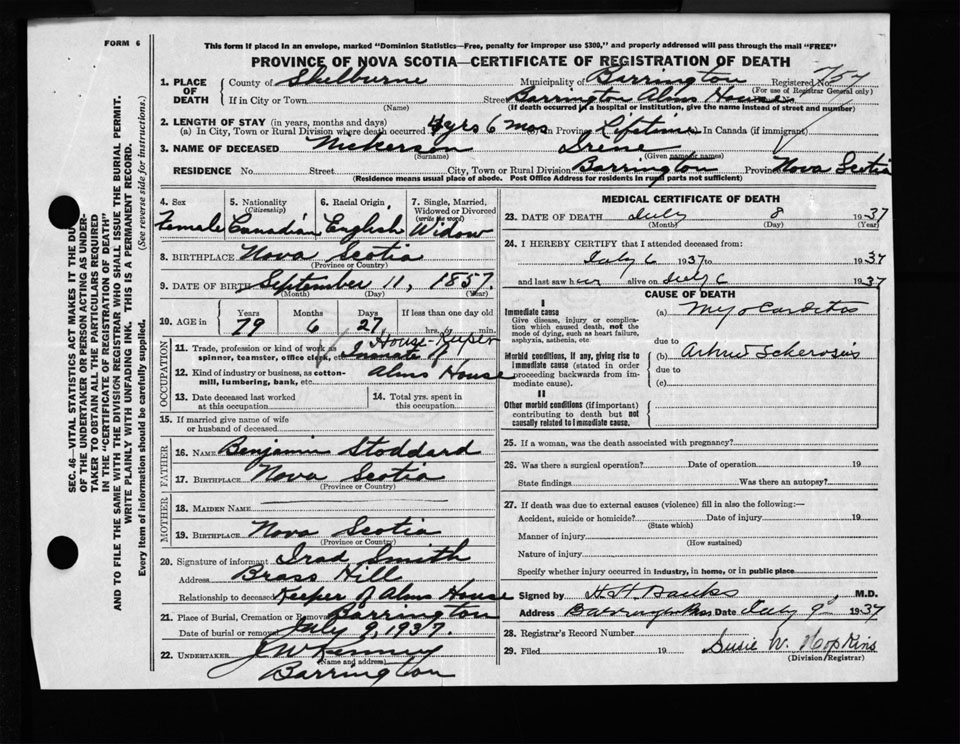 FORM 6
This form if placed in an envelope, marked "Dominion Statistics—Free, penalty for improper use $300," and properly addressed will pass through the mail "FREE"
PROVINCE OF NOVA SCOTIA—CERTIFICATE OF REGISTRATION OF DEATH
1. PLACE OF DEATH
County of Shelburne Municipality of Barrington Registered No. 757
(For use of Registrar General only)
If in City or Town Street Barrington Alms House No.
(Name) (If death occurred in a hospital or institution, give the name instead of street and number)
2. LENGTH OF STAY (in years, months and days)
(a) In City, Town or Rural Division where death occurred 4 yrs 6 mos In Province Lifetime In Canada (if immigrant)
3. NAME OF DECEASED Nickerson Irene
(Surname) (Given name or names)
RESIDENCE No. Street City, Town or Rural Division Barrington Province Nova Scotia
(Residence means usual place of abode. Post Office Address for residents in rural parts not sufficient)
4. Sex
Female
5. Nationality
(Citizenship)
Canadian
6. Racial Origin
English
7. Single, Married, Widowed or Divorced
(write the word)
Widow
8. BIRTHPLACE Nova Scotia
(Province or Country)
9. DATE OF BIRTH September 11, 1857
(Month) (Day) (Year)
10. AGE in
Years Months Days If less than one day old
79 6 27 hrs. or min.
OCCUPATION
11. Trade, profession or kind of work as spinner, teamster, office clerk, etc. House-Keeper
Inmate of
12. Kind of industry or business, as cotton-mill, lumbering, bank, etc. Alms House
13. Date deceased last worked at this occupation
14. Total yrs. spent in this occupation
15. If married give name of wife or husband of deceased
FATHER
16. NAME Benjamin Stoddard
17. BIRTHPLACE Nova Scotia
(Province or Country)
MOTHER
18. MAIDEN NAME
19. BIRTHPLACE Nova Scotia
(Province or Country)
20. Signature of informant Irad Smith
Address Brass Hill
Relationship to deceased Keeper of Alms House
21. Place of Burial, Cremation or Removal Barrington
Date of burial or removal July 9, 1937.
22. UNDERTAKER J W Kenney
(Name and address)
Barrington
MEDICAL CERTIFICATE OF DEATH
23. DATE OF DEATH July 8 1937
(Month) (Day) (Year)
24. I HEREBY CERTIFY that I attended deceased from:
July 6 1937 to 1937
and last saw her alive on July 6 1937
CAUSE OF DEATH
I
Immediate cause
Give disease, injury or complication which caused death, not the mode of dying, such as heart failure, asphyxia, asthenia, etc
(a) Myocarditis
due to
Morbid conditions, if any, giving rise to immediate cause (stated in order proceeding backwards from immediate cause).
(b) Arterio Sclerosis
due to
(c)
II
Other morbid conditions (if important) contributing to death but not causally related to immediate cause.
25. If a woman, was the death associated with pregnancy?
26. Was there a surgical operation? Date of operation 19
State findings Was there an autopsy?
27. If death was due to external causes (violence) fill in also the following:—
Accident, suicide or homicide? Date of injury 19
(State which)
Manner of injury
(How sustained)
Nature of injury
Specify whether injury occurred in industry, in home, or in public place
Signed by H H Banks M.D.
Address Barrington Pass Date July 9 1937
28. Registrar's Record Number
29. Filed 19 Susie W. Hopkins
(Division Registrar)
SEC. 46—VITAL STATISTICS ACT MAKES IT THE DUTY
OF THE UNDERTAKER OR PERSON ACTING AS UNDER-
TAKER TO OBTAIN ALL THE PARTICULARS REQUIRED
IN THE "CERTIFICATE OF REGISTRATION OF DEATH"
AND TO FILE THE SAME WITH THE DIVISION REGISTRAR WHO SHALL ISSUE THE BURIAL PERMIT.
WRITE PLAINLY WITH UNFADING INK. THIS IS A PERMANENT RECORD.
Every item of information should be carefully supplied. (See reverse side for instructions.)